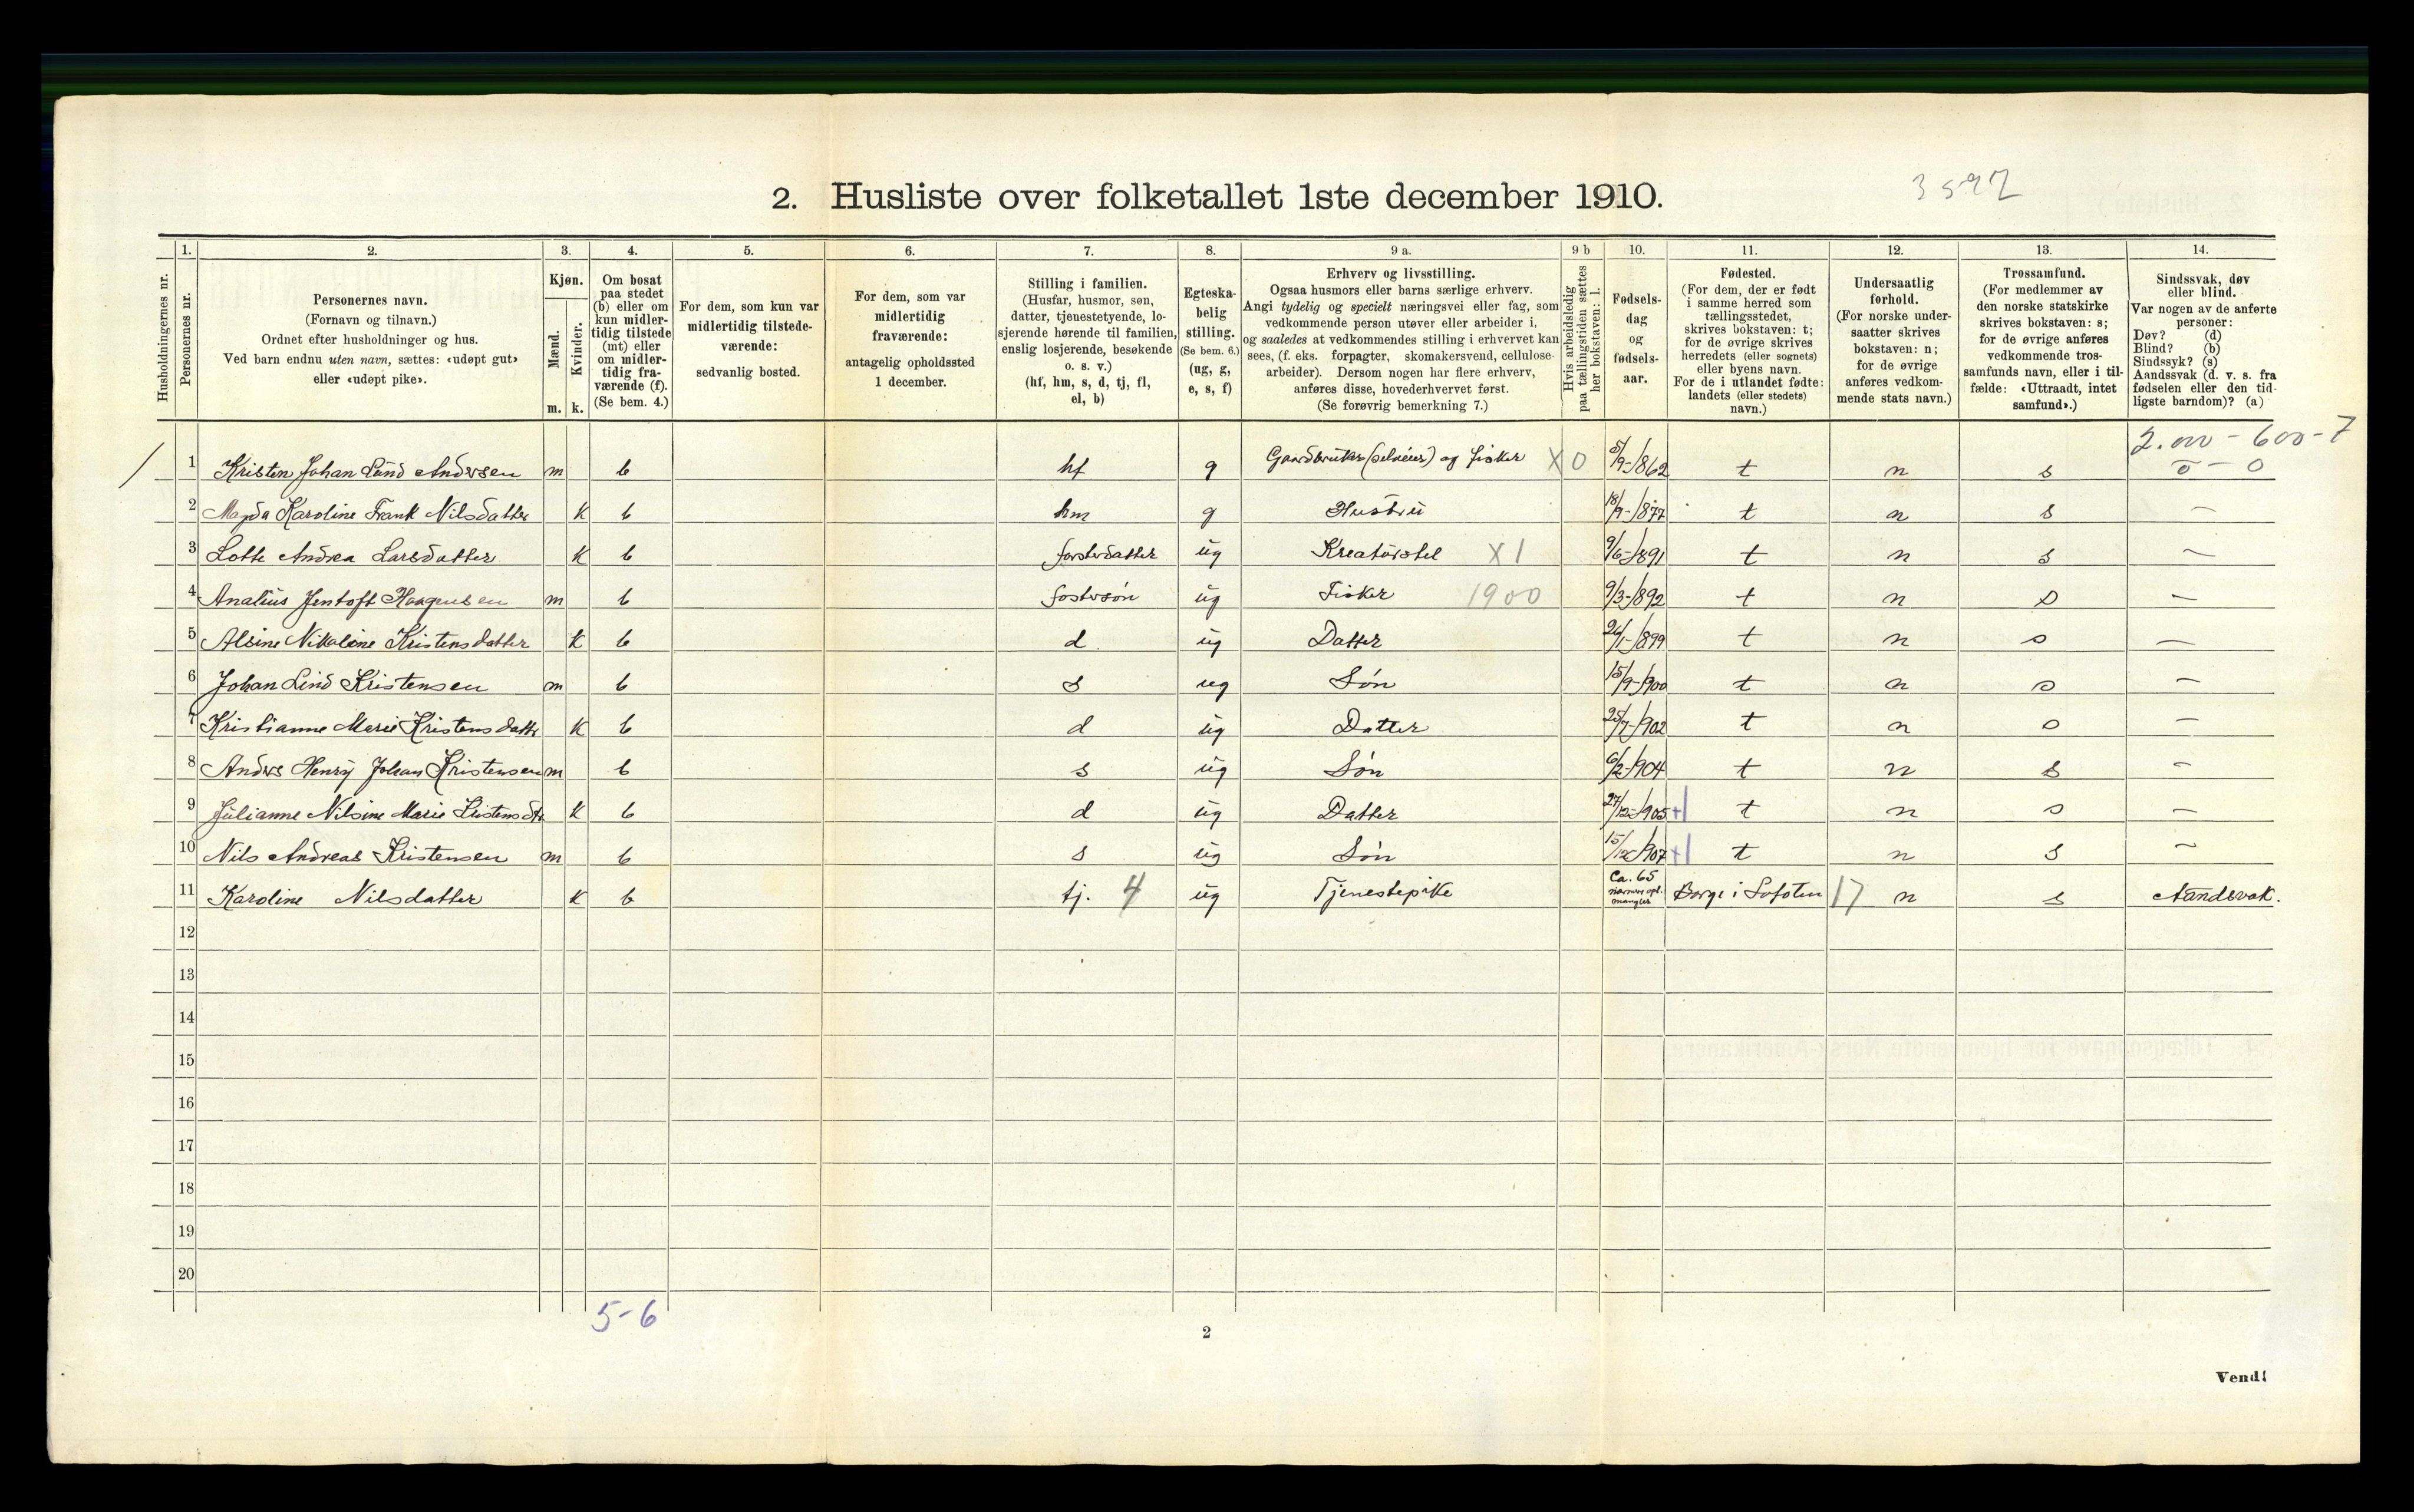 3592
2. Husliste over folketallet 1ste december 1910.
Husholdningernes nr.
1. Personernes nr.
2. Personernes navn.
(Fornavn og tilnavn.)
Ordnet efter husholdninger og hus.
Ved barn endnu uten navn, sættes: «udøpt gut»
eller «udøpt pike».
3. Kjøn.
Mænd. m.
Kvinder. k.
4. Om bosat
paa stedet
(b) eller om
kun midler-
tidig tilstede
(mt) eller
om midler-
tidig fra-
værende (f).
(Se bem. 4.)
5. For dem, som kun var
midlertidig tilstede-
værende:
sedvanlig bosted.
6. For dem, som var
midlertidig
fraværende:
antagelig opholdssted
1 december.
7. Stilling i familien.
(Husfar, husmor, søn,
datter, tjenestetyende, lo-
sjerende hørende til familien,
enslig losjerende, besøkende
o. s. v.)
(hf, hm, s, d, tj, fl,
el, b)
8. Egteska-
belig
stilling.
(Se bem. 6.)
(ug, g,
e, s, f)
9 a. Erhverv og livsstilling.
Ogsaa husmors eller barns særlige erhverv.
Angi tydelig og specielt næringsvei eller fag, som
vedkommende person utøver eller arbeider i,
og saaledes at vedkommendes stilling i erhvervet kan
sees, (f. eks. forpagter, skomakersvend, cellulose-
arbeider). Dersom nogen har flere erhverv,
anføres disse, hovederhvervet først.
(Se forøvrig bemerkning 7.)
9 b Hvis arbeidsledig
paa tællingstiden sættes
her bokstaven: l.
10. Fødsels-
dag
og
fødsels-
aar.
11. Fødested.
(For dem, der er født
i samme herred som
tællingsstedet,
skrives bokstaven: t;
for de øvrige skrives
herredets (eller sognets)
eller byens navn.
For de i utlandet fødte:
landets (eller stedets)
navn.)
12. Undersaatlig
forhold.
(For norske under-
saatter skrives
bokstaven: n;
for de øvrige
anføres vedkom-
mende stats navn.)
13. Trossamfund.
(For medlemmer av
den norske statskirke
skrives bokstaven: s;
for de øvrige anføres
vedkommende tros-
samfunds navn, eller i til-
fælde: «Uttraadt, intet
samfund».)
14. Sindssvak, døv
eller blind.
Var nogen av de anførte
personer:
Døv? (d)
Blind? (b)
Sindssyk? (s)
Aandssvak (d. v. s. fra
fødselen eller den tid-
ligste barndom)? (a)
2.000 - 600 - 7
0 - 0
1 Kristen Johan Lund Andersen m b hf g Gaardbruker (selveier) og fisker X 0 5/9-1862 t n s
2 Magda Karoline Frank Nilsdatter k b hm g Hustru 18/9-1877 t n s —
3 Lotte Andrea Larsdatter k b forsterdatter ug Kreaturstel X1 9/6-1891 t n s —
4 Analius Jentoft Haagensen m b fostersøn ug Fisker 1900 9/3-1892 t n s —
5 Alsine Nikoline Kristensdatter k b d ug Datter 26/1-1899 t n s —
6 Johan Lind Kristensen m b s ug Søn 15/9-1900 t n s —
7 Kristianne Marie Kristensdattr k b d ug Datter 25/7-1902 t n s —
8 Anders Henry Johan Kristensen m b s ug Søn 6/2-1904 t n s —
9 Julianne Nilsine Marie Kristensdtr k b d ug Datter 27/12-1905 +1 t n s —
10 Nils Andreas Kristensen m b s ug Søn 15/12-1907 +1 t n s —
11 Karoline Nilsdatter k b tj. 4 ug Tjenestepike Ca. 65 nærmere opl. mangler Borge i Lofoten 17 n s Aandsvak.
12
13
14
15
16
17
18
19
20
5-6
2
Vend!